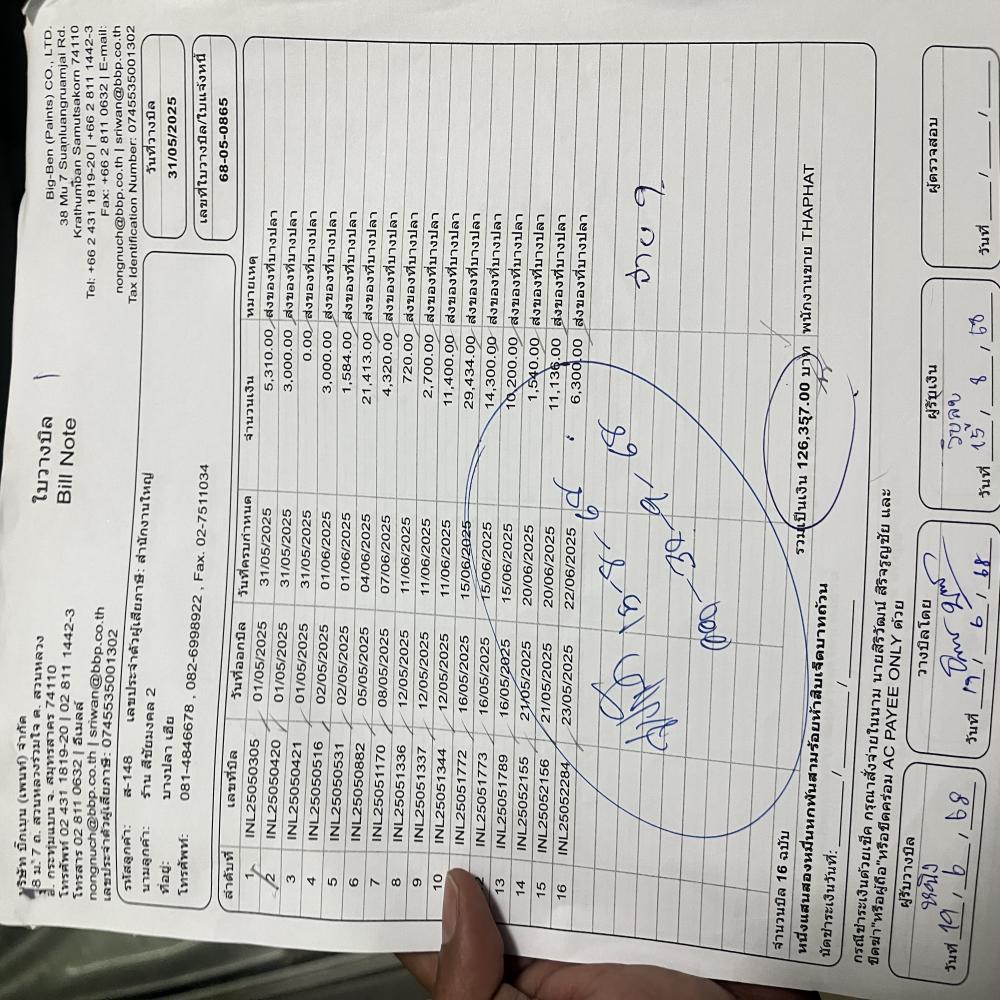 บริษัท บิ๊กเบน (เพนท์) จำกัด
38 ม.7 ถ. สวนหลวงร่วมใจ ต. สวนหลวง
อ. กระทุ่มแบน จ. สมุทรสาคร 74110
โทรศัพท์ 02 431 1819-20 | 02 811 1442-3
โทรสาร 02 811 0632 | อีเมลล์
nongnuch@bbp.co.th | sriwan@bbp.co.th
เลขประจำตัวผู้เสียภาษี: 0745535001302
ใบวางบิล
Bill Note
Big-Ben (Paints) CO., LTD.
38 Mu 7 Suanluangruamjai Rd.
Krathumban Samutsakorn 74110
Tel: +66 2 431 1819-20 | +66 2 811 1442-3
Fax: +66 2 811 0632 | E-mail:
nongnuch@bbp.co.th | sriwan@bbp.co.th
Tax Identification Number: 0745535001302
รหัสลูกค้า: ส-148 เลขประจำตัวผู้เสียภาษี: สำนักงานใหญ่
นามลูกค้า: ร้าน สีชัยมงคล 2
ที่อยู่: บางปลา เฮีย
โทรศัพท์: 081-4846678 , 082-6998922 , Fax. 02-7511034
วันที่วางบิล
31/05/2025
เลขที่ใบวางบิล/ใบแจ้งหนี้
68-05-0865
ลำดับที่ เลขที่บิล วันที่ออกบิล วันที่ครบกำหนด จำนวนเงิน หมายเหตุ
1 INL25050305 01/05/2025 31/05/2025 5,310.00 ส่งของที่บางปลา
2 INL25050420 01/05/2025 31/05/2025 3,000.00 ส่งของที่บางปลา
3 INL25050421 01/05/2025 31/05/2025 0.00 ส่งของที่บางปลา
4 INL25050516 02/05/2025 01/06/2025 3,000.00 ส่งของที่บางปลา
5 INL25050531 02/05/2025 01/06/2025 1,584.00 ส่งของที่บางปลา
6 INL25050882 05/05/2025 04/06/2025 21,413.00 ส่งของที่บางปลา
7 INL25051170 08/05/2025 07/06/2025 4,320.00 ส่งของที่บางปลา
8 INL25051336 12/05/2025 11/06/2025 720.00 ส่งของที่บางปลา
9 INL25051337 12/05/2025 11/06/2025 2,700.00 ส่งของที่บางปลา
10 INL25051344 12/05/2025 11/06/2025 11,400.00 ส่งของที่บางปลา
INL25051772 16/05/2025 15/06/2025 29,434.00 ส่งของที่บางปลา
INL25051773 16/05/2025 15/06/2025 14,300.00 ส่งของที่บางปลา
13 INL25051789 16/05/2025 15/06/2025 10,200.00 ส่งของที่บางปลา
14 INL25052155 21/05/2025 20/06/2025 1,540.00 ส่งของที่บางปลา
15 INL25052156 21/05/2025 20/06/2025 11,136.00 ส่งของที่บางปลา
16 INL25052284 23/05/2025 22/06/2025 6,300.00 ส่งของที่บางปลา
จำนวนบิล 16 ฉบับ รวมเป็นเงิน 126,357.00 บาท พนักงานขาย THAPHAT
หนึ่งแสนสองหมื่นหกพันสามร้อยห้าสิบเจ็ดบาทถ้วน
นัดชำระเงินวันที่: / /
กรณีชำระเงินด้วยเช็ค กรุณาสั่งจ่ายในนาม นายสิริวัฒน์ สิริจรูญชัย และ
ขีดฆ่า"หรือผู้ถือ"หรือขีดคร่อม AC PAYEE ONLY ด้วย
ผู้รับวางบิล
วันที่ 19 / 6 / 68
วางบิลโดย
วันที่ 19 / 6 / 68
ผู้รับเงิน
วันที่ 15 / 8 / 68
ผู้ตรวจสอบ
วันที่ / /